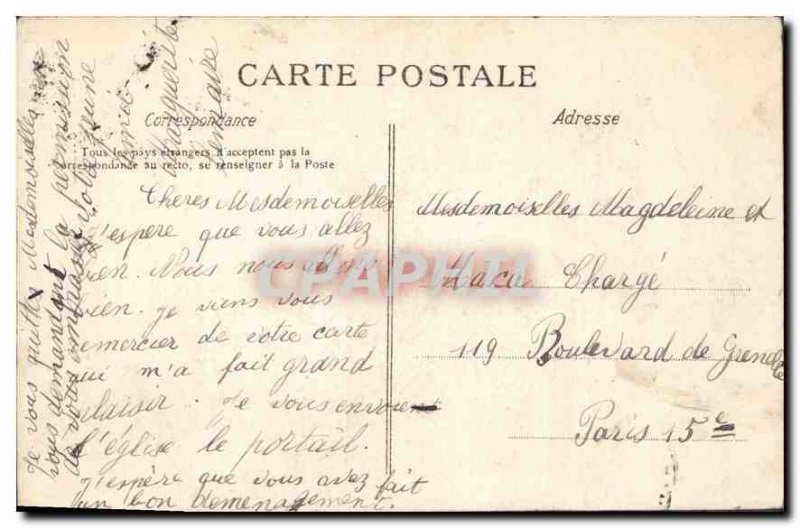 CARTE POSTALE
Correspondance
Tous les pays étrangers n'acceptent pas la
correspondance au recto, se renseigner à la Poste
Adresse
Cheres Mesdemoiselles
j'espère que vous allez
bien. Nous nous allons
bien. je viens vous
remercier de votre carte
qui m'a fait grand
plaisir. Je vous envoie
l'église le portail.
j'espère que vous avez fait
un bon demenagement.
Je vous quitte Mesdemoiselles en
vous demandant la permission
de vous embrasser
amie
Marguerite
Mesdemoiselles Magdeleine et
Chargé
119 Boulevard de Grenelle
Paris 15e
CPAPHIL